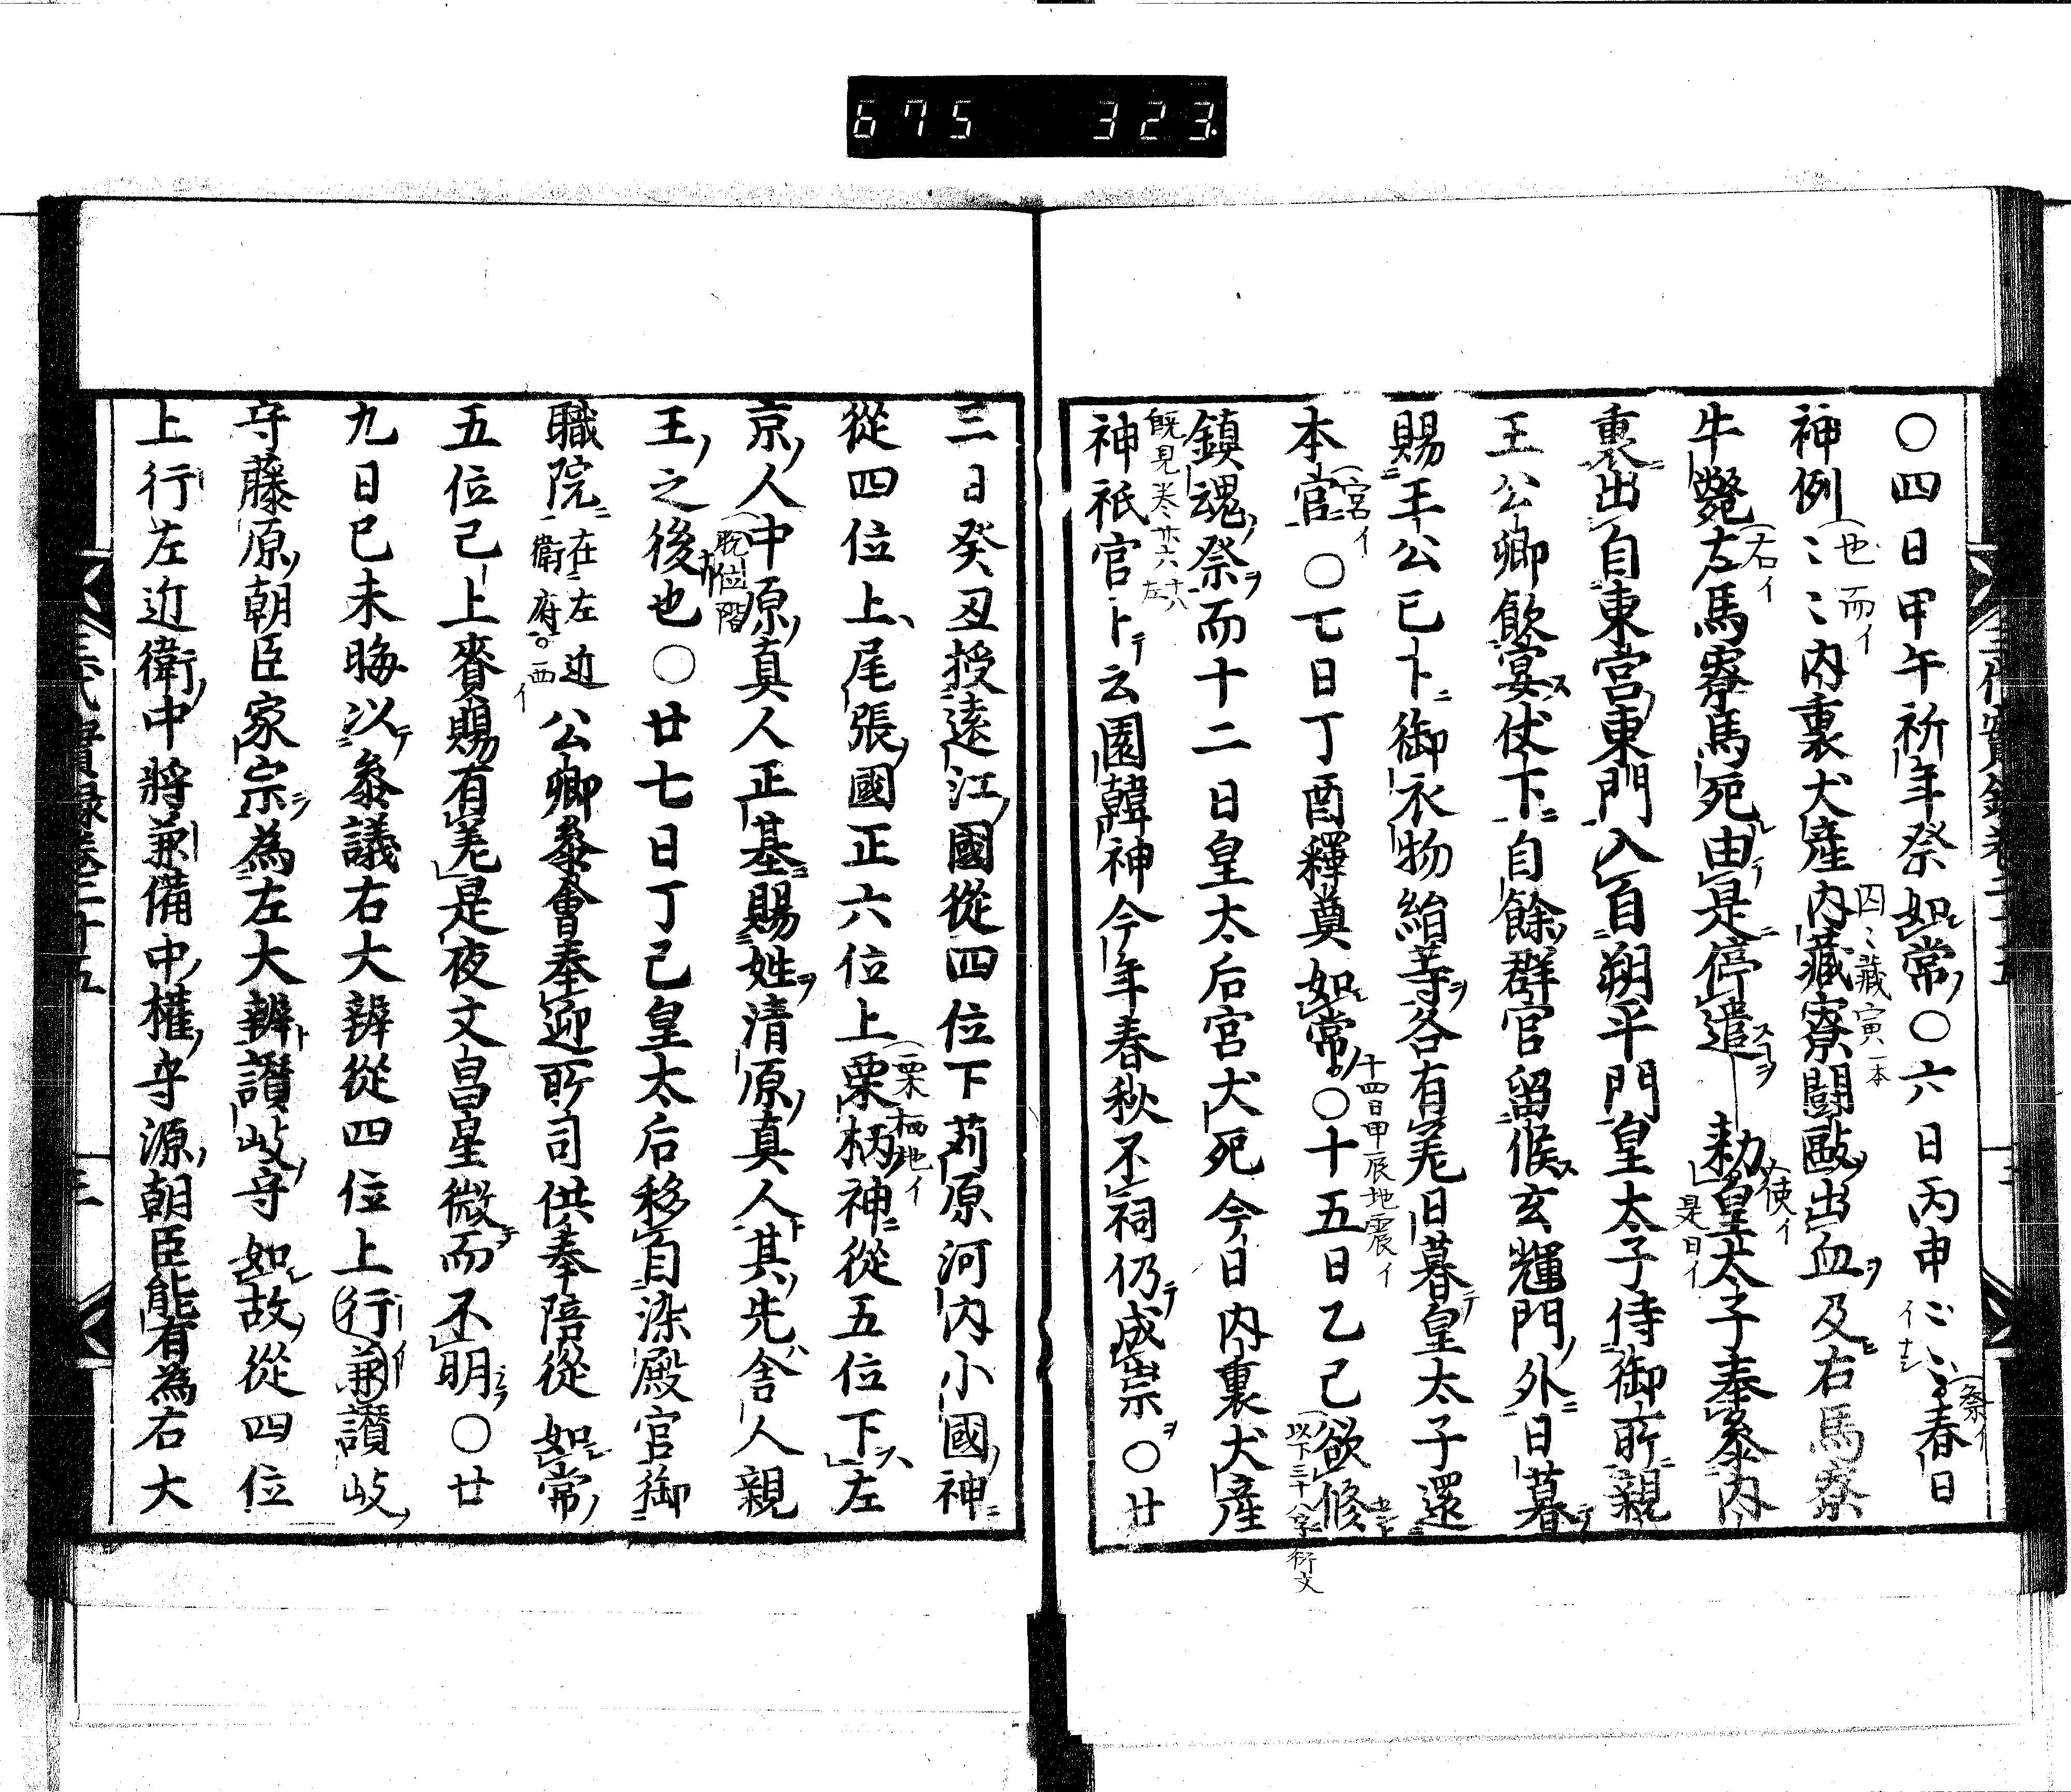 675 323
○四日甲午祈年祭如常○六日丙申春日
神例内裏犬產内藏寮鬪毆出血及右馬寮
牛斃左馬寮馬死由是停遣勅皇太子奉參内
裏出自東宮東門入自朔平門皇太子侍御所親
王公卿飲宴仗下自餘群官留候玄輝門外日暮
賜王公已下御衣物紿等各有差日暮皇太子還
本宮○七日丁酉釋奠如常○十五日乙己欲修
鎮魂祭而十二日皇太后宮犬死今日内裏犬產
神祇官卜云園韓神今年春秋不祠仍成祟○廿
三日癸丑授遠江國從四位下苅原河内小國神
從四位上尾張國正六位上栗柄神從五位下左
京人中原真人正基賜姓清原真人其先舎人親
王之後也○廿七日丁己皇太后移自染殿宮御
職院在左近衛府西公卿參會奉迎所司供奉陪從如常
五位已上賚賜有差是夜文昌星微而不明○廿
九日已未晦以參議右大辨從四位上行兼讃岐
守藤原朝臣家宗為左大辨讃岐守如故從四位
上行左近衛中將兼備中權守源朝臣能有為右大
三代實録卷二十五
三
也而イ
右イ
使イ
是日イ
宮イ
十四日甲辰地震イ
以下三十八字衍文
既見卷廿六
栗栖地イ
脱位階
祭イ